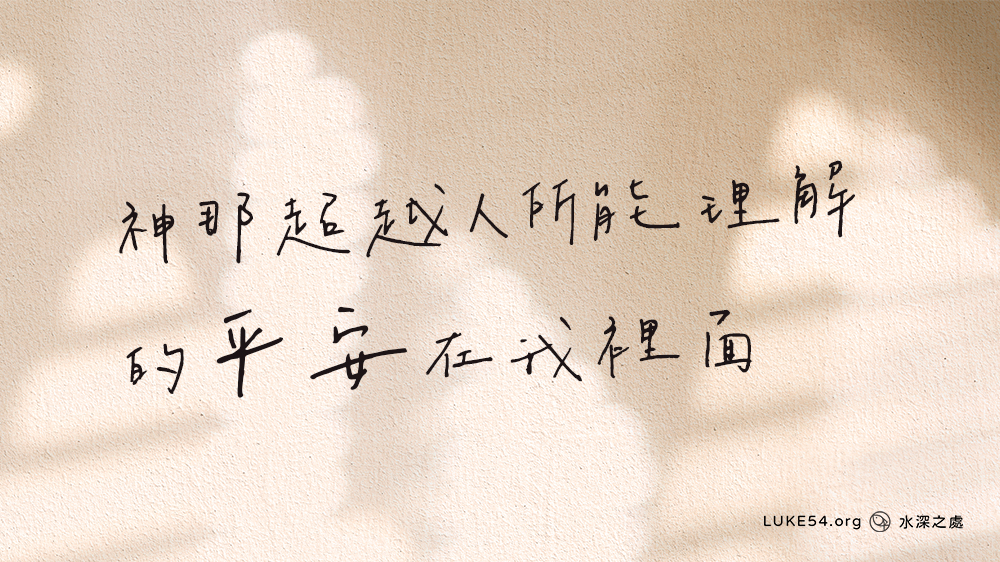 神那超越人所能理解
的平安在我裡面
LUKE54.org 水深之處